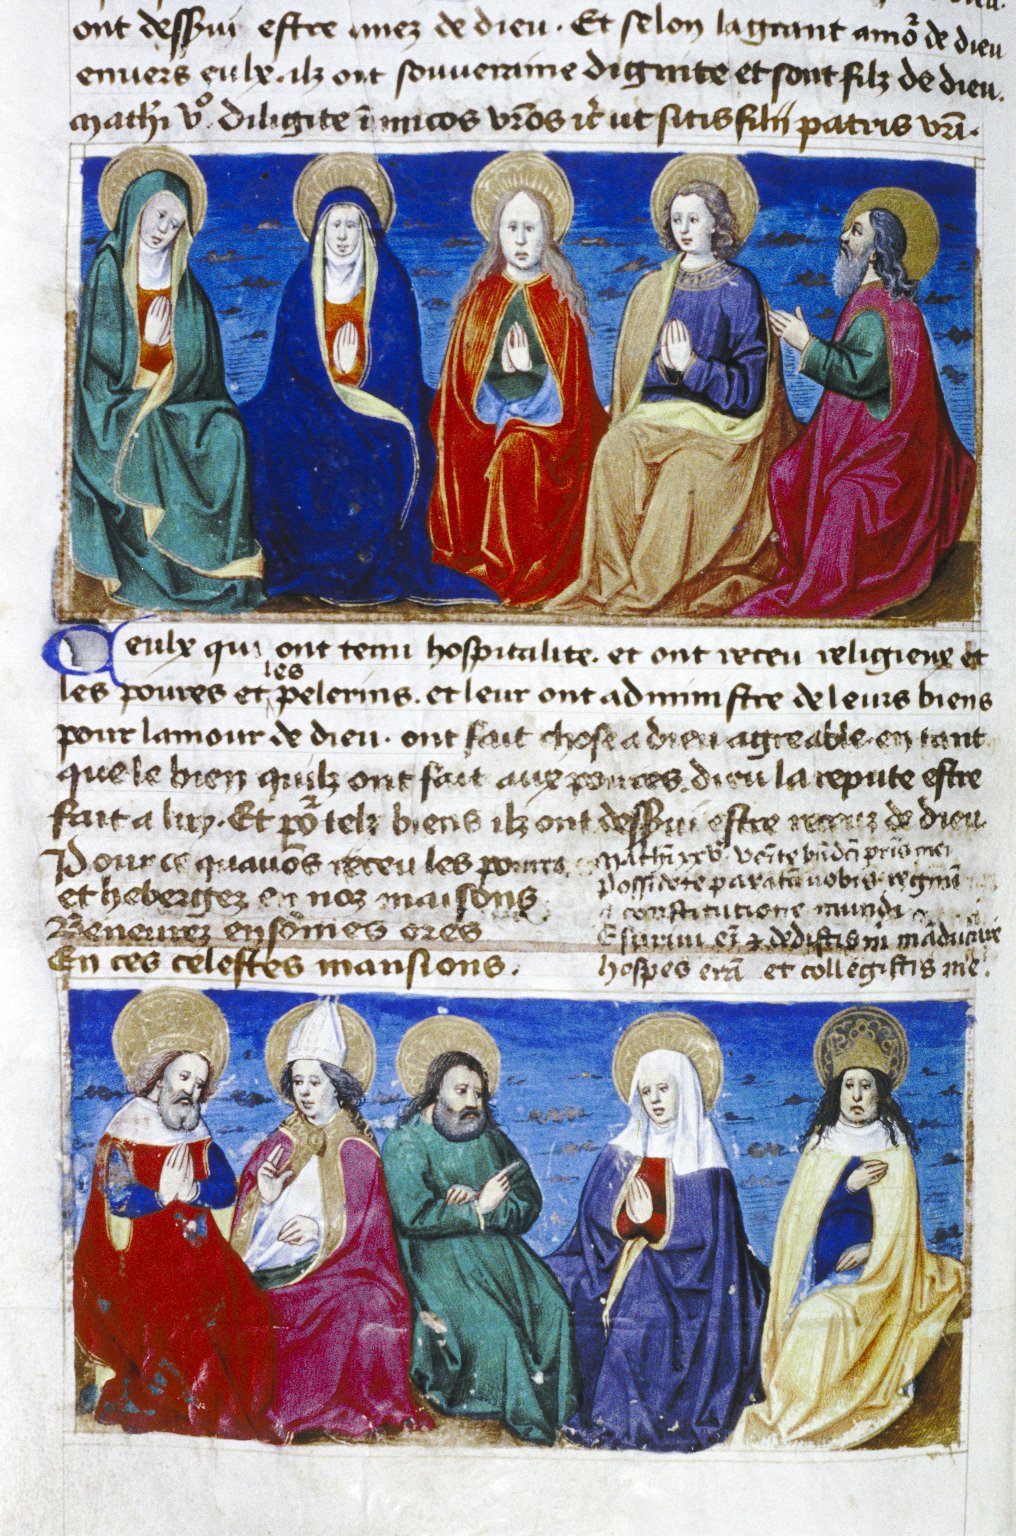 ont desservi estre amez de dieu. Et selon la grant amoʳ de dieu
envers eulx. ilz ont souveraine dignite et sont filz de dieu.
Mathi vº. Diligite īimicos vr̄os ic̄ ut sitis filii patris vr̄i.
Ceulx qui ont tenu hospitalite. et ont receu religieux et
les poures et les pelerins. et leur ont adminístre de leurs biens
pour lamour de dieu. ont fait chose a dieu agreable. en tant
que le bien quilz ont fait aux poures. dieu la repute estre
fait a luy. Et poʳ telz biens ilz ont desservi estre receuz de dieu
Pour ce quavōs receu les poures
et hebergez en noz maisons
Beneurez en sōmes ores
En ces celestes mansions.
Mathi xxvº. venite bn̄dcī pr̄is mei
possidete paratū vobis regnūm
a constitutione mundi
Esurivi em̄ et dedistis m̄ māducare
hospes erā et collegistis me.